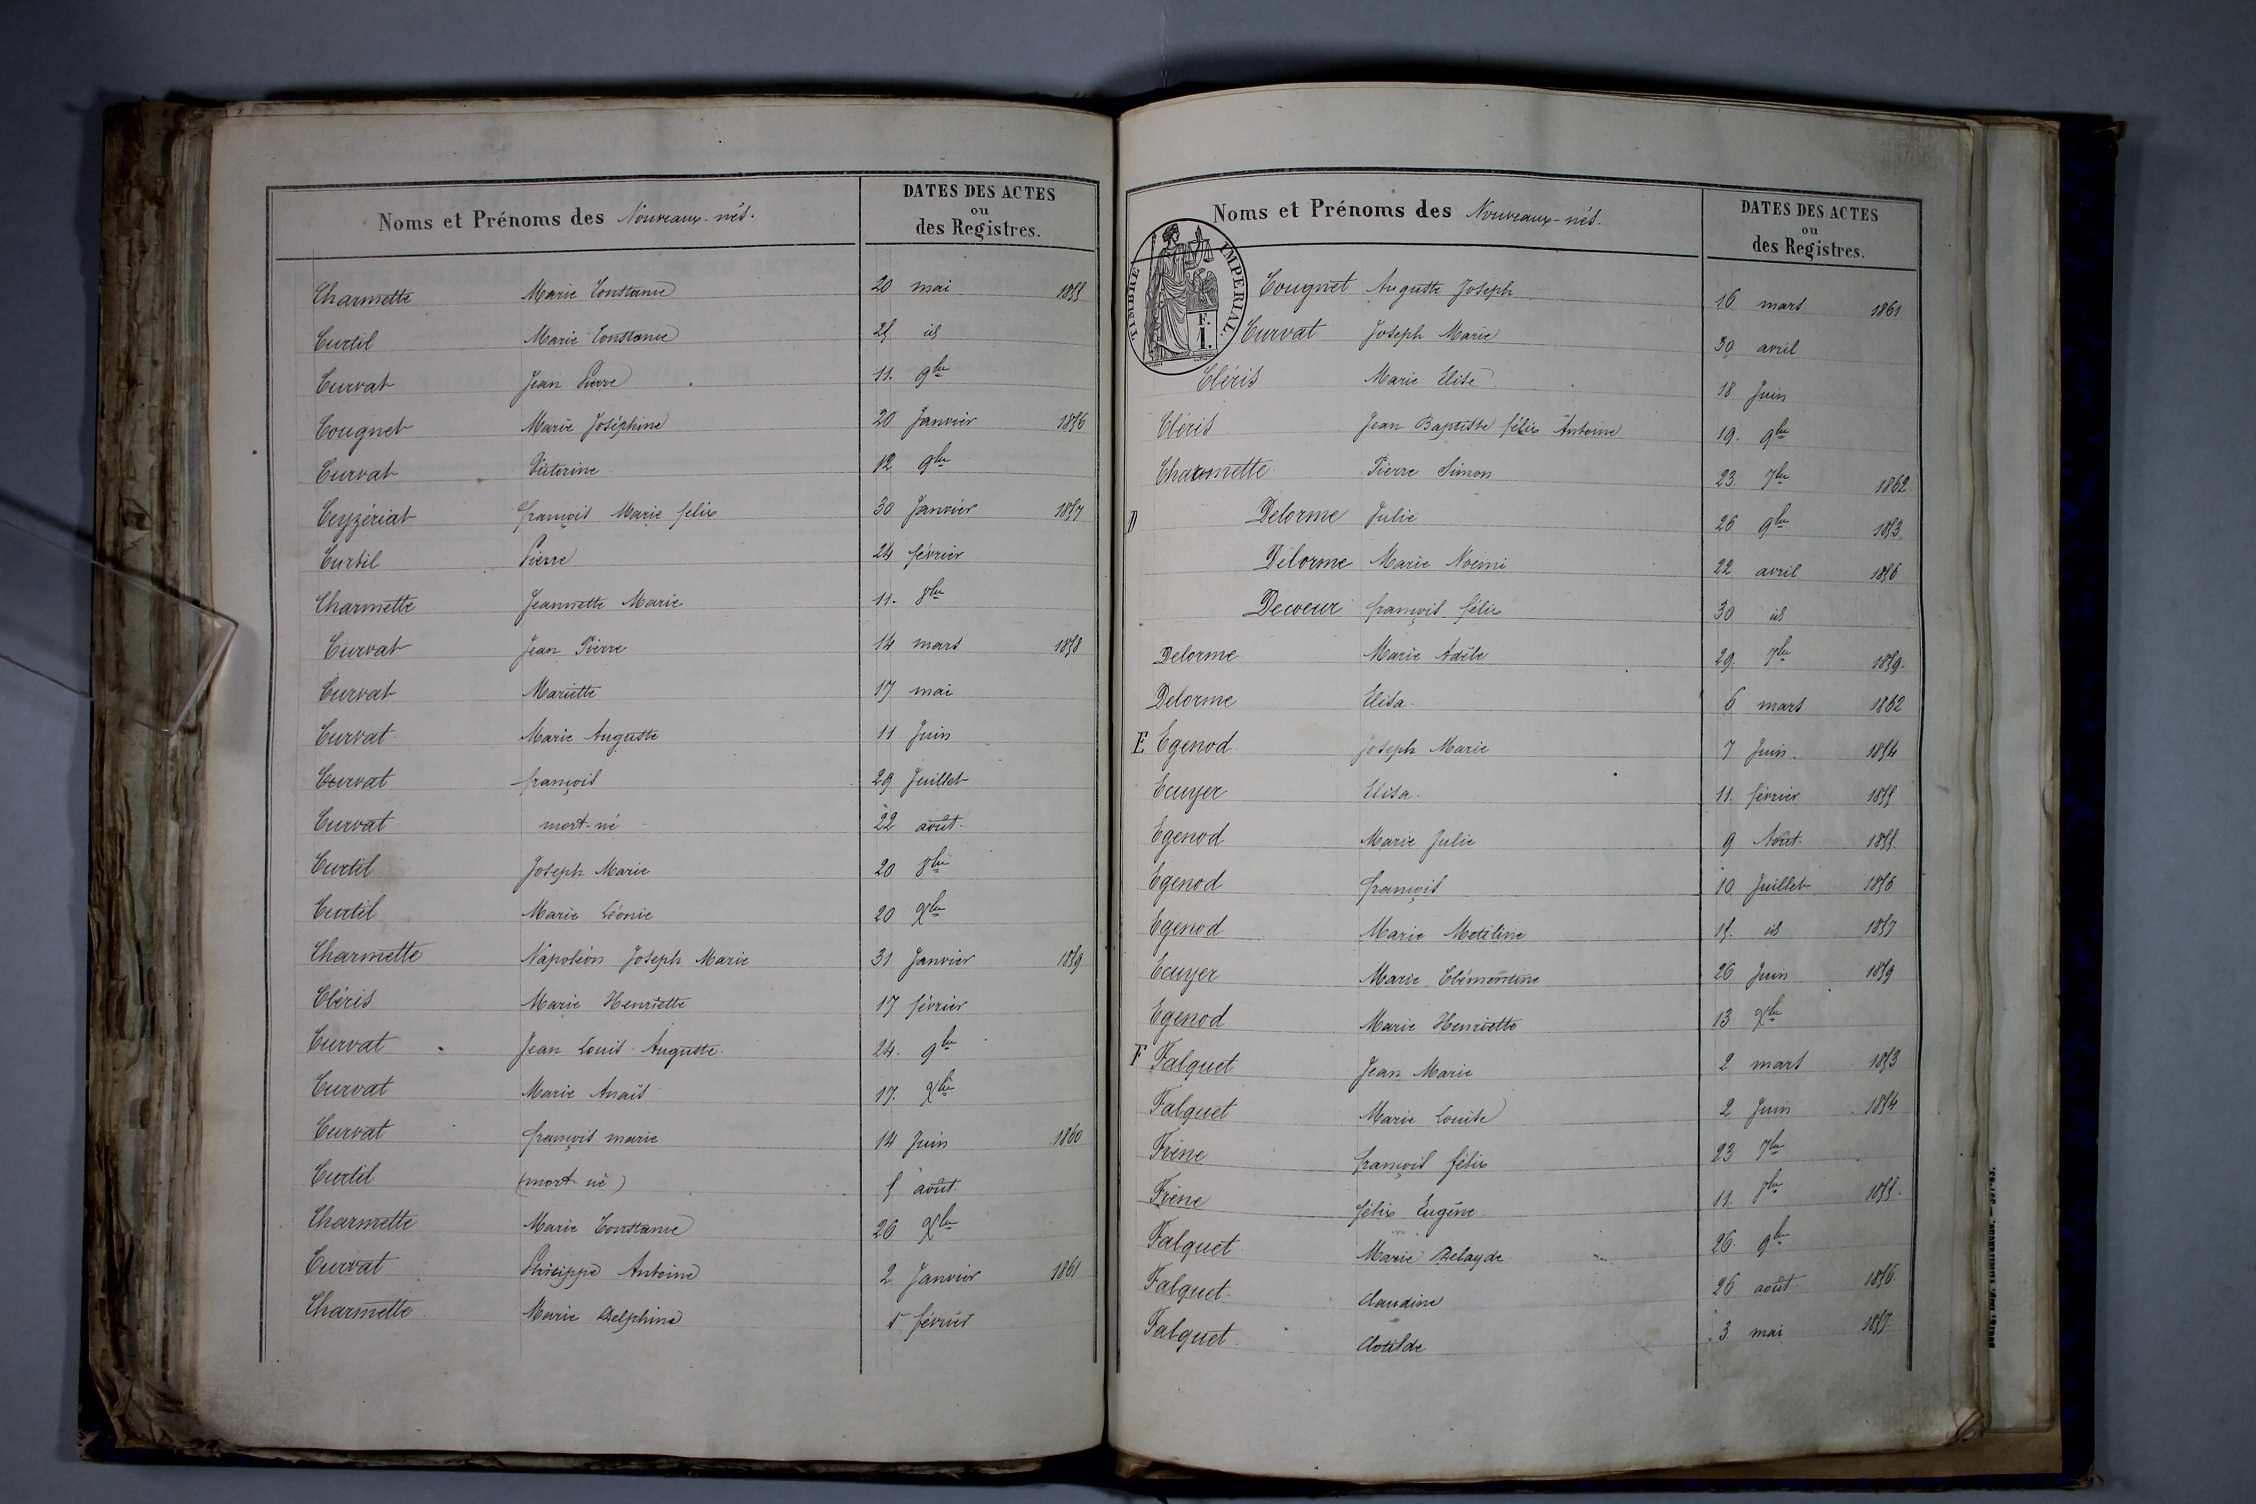 Noms et Prénoms des Nouveaux-nés.
DATES DES ACTES
ou
des Registres.
Charmette Marie Constance 20 mai 1855
Curtil Marie Constance 25 id
Curvat Jean Pierre 11. 9bre
Cougnet Marie Joséphine 20 Janvier 1856
Curvat Victorine 12 9bre
Ceyzériat françois Marie félix 30 Janvier 1857
Curtil Pierre 24 février
Charmette Jeannette Marie 11. 8bre
Curvat Jean Pierre 14 mars 1858
Curvat Mariette 17 mai
Curvat Marie Auguste 11 Juin
Curvat françois 29 Juillet
Curvat mort-né 22 août.
Curtil Joseph Marie 20 8bre
Curtil Marie Léonie 20 Xbre
Charmette Napoléon Joseph Marie 31 Janvier 1859
Cléris Marie Henriette 17 février
Curvat Jean Louis Auguste. 24. 9bre
Curvat Marie Anaïs 17. Xbre
Curvat françois marie 14 Juin 1860
Curtil (mort-né) 5 août
Charmette Marie Constance 26 Xbre
Curvat Philippe Antoine 2 Janvier 1861
Charmette Marie Delphine 5 février
Noms et Prénoms des Nouveaux-nés.
DATES DES ACTES
ou
des Registres.
TIMBRE IMPERIAL.
F.
1.
Cougnet Auguste Joseph 16 mars 1861
Curvat Joseph Marie 30 avril
Cléris Marie Elise 18 Juin
Cléris Jean Baptiste félix Antoine 19. 9bre
Charmette Pierre Simon 23. 7bre 1862
D Delorme Julie 26 9bre 1853.
Delorme Marie Noémi 22 avril 1856
Decoeur françois félix 30 id
Delorme Marie Adèle 29. 7bre 1859.
Delorme Elisa. 6 mars 1862
E Egenod Joseph Marie 7 Juin. 1854
Ecuyer Elisa. 11. février 1855
Egenod Marie Julie 9 Août. 1855
Egenod françois 10 Juillet 1856
Egenod Marie Metiline 15. id 1857
Ecuyer Marie Clémentine 26 Juin 1859
Egenod Marie Henriette 13 Xbre
F Falquet Jean Marie 2 mars 1853
Falquet Marie Louise 2 Juin 1854
Frène françois félix 23 7bre
Frène félix Eugène 11. 8bre 1855.
Falquet Marie Delayde 26 9bre
Falquet. Claudine 26 août. 1856
Falquet. Clotilde 3 mai 1857